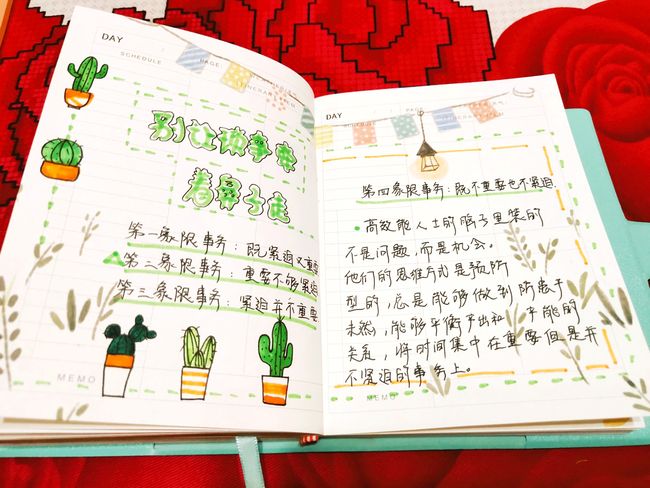 DAY
SCHEDULE
PAGE:
别让琐事牵
着鼻子走
第一象限事务：既紧迫又重要
第二象限事务：重要不够紧迫
第三象限事务：紧迫并不重要
MEMO
DAY
第四象限事务：既不重要也不紧迫.
高效能人士的脑子里装的
不是问题，而是机会。
他们的思维方式是预防
型的，总是能够做到防患于
未然，能够平衡产出和产能的
关系，将时间集中在重要但是并
不紧迫的事务上。
MEMO